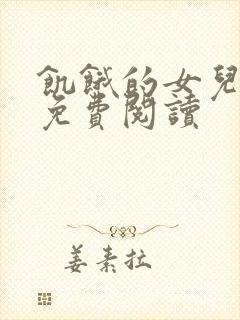 飢餓的女兒
免費閱讀
姜素拉